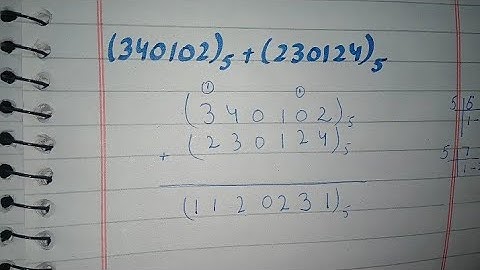 (340102)₅ + (230124)₅
① ①
(340102)₅
+ (230124)₅
(1120231)₅
5 | 6
1 -
5 | 7
1 - 2